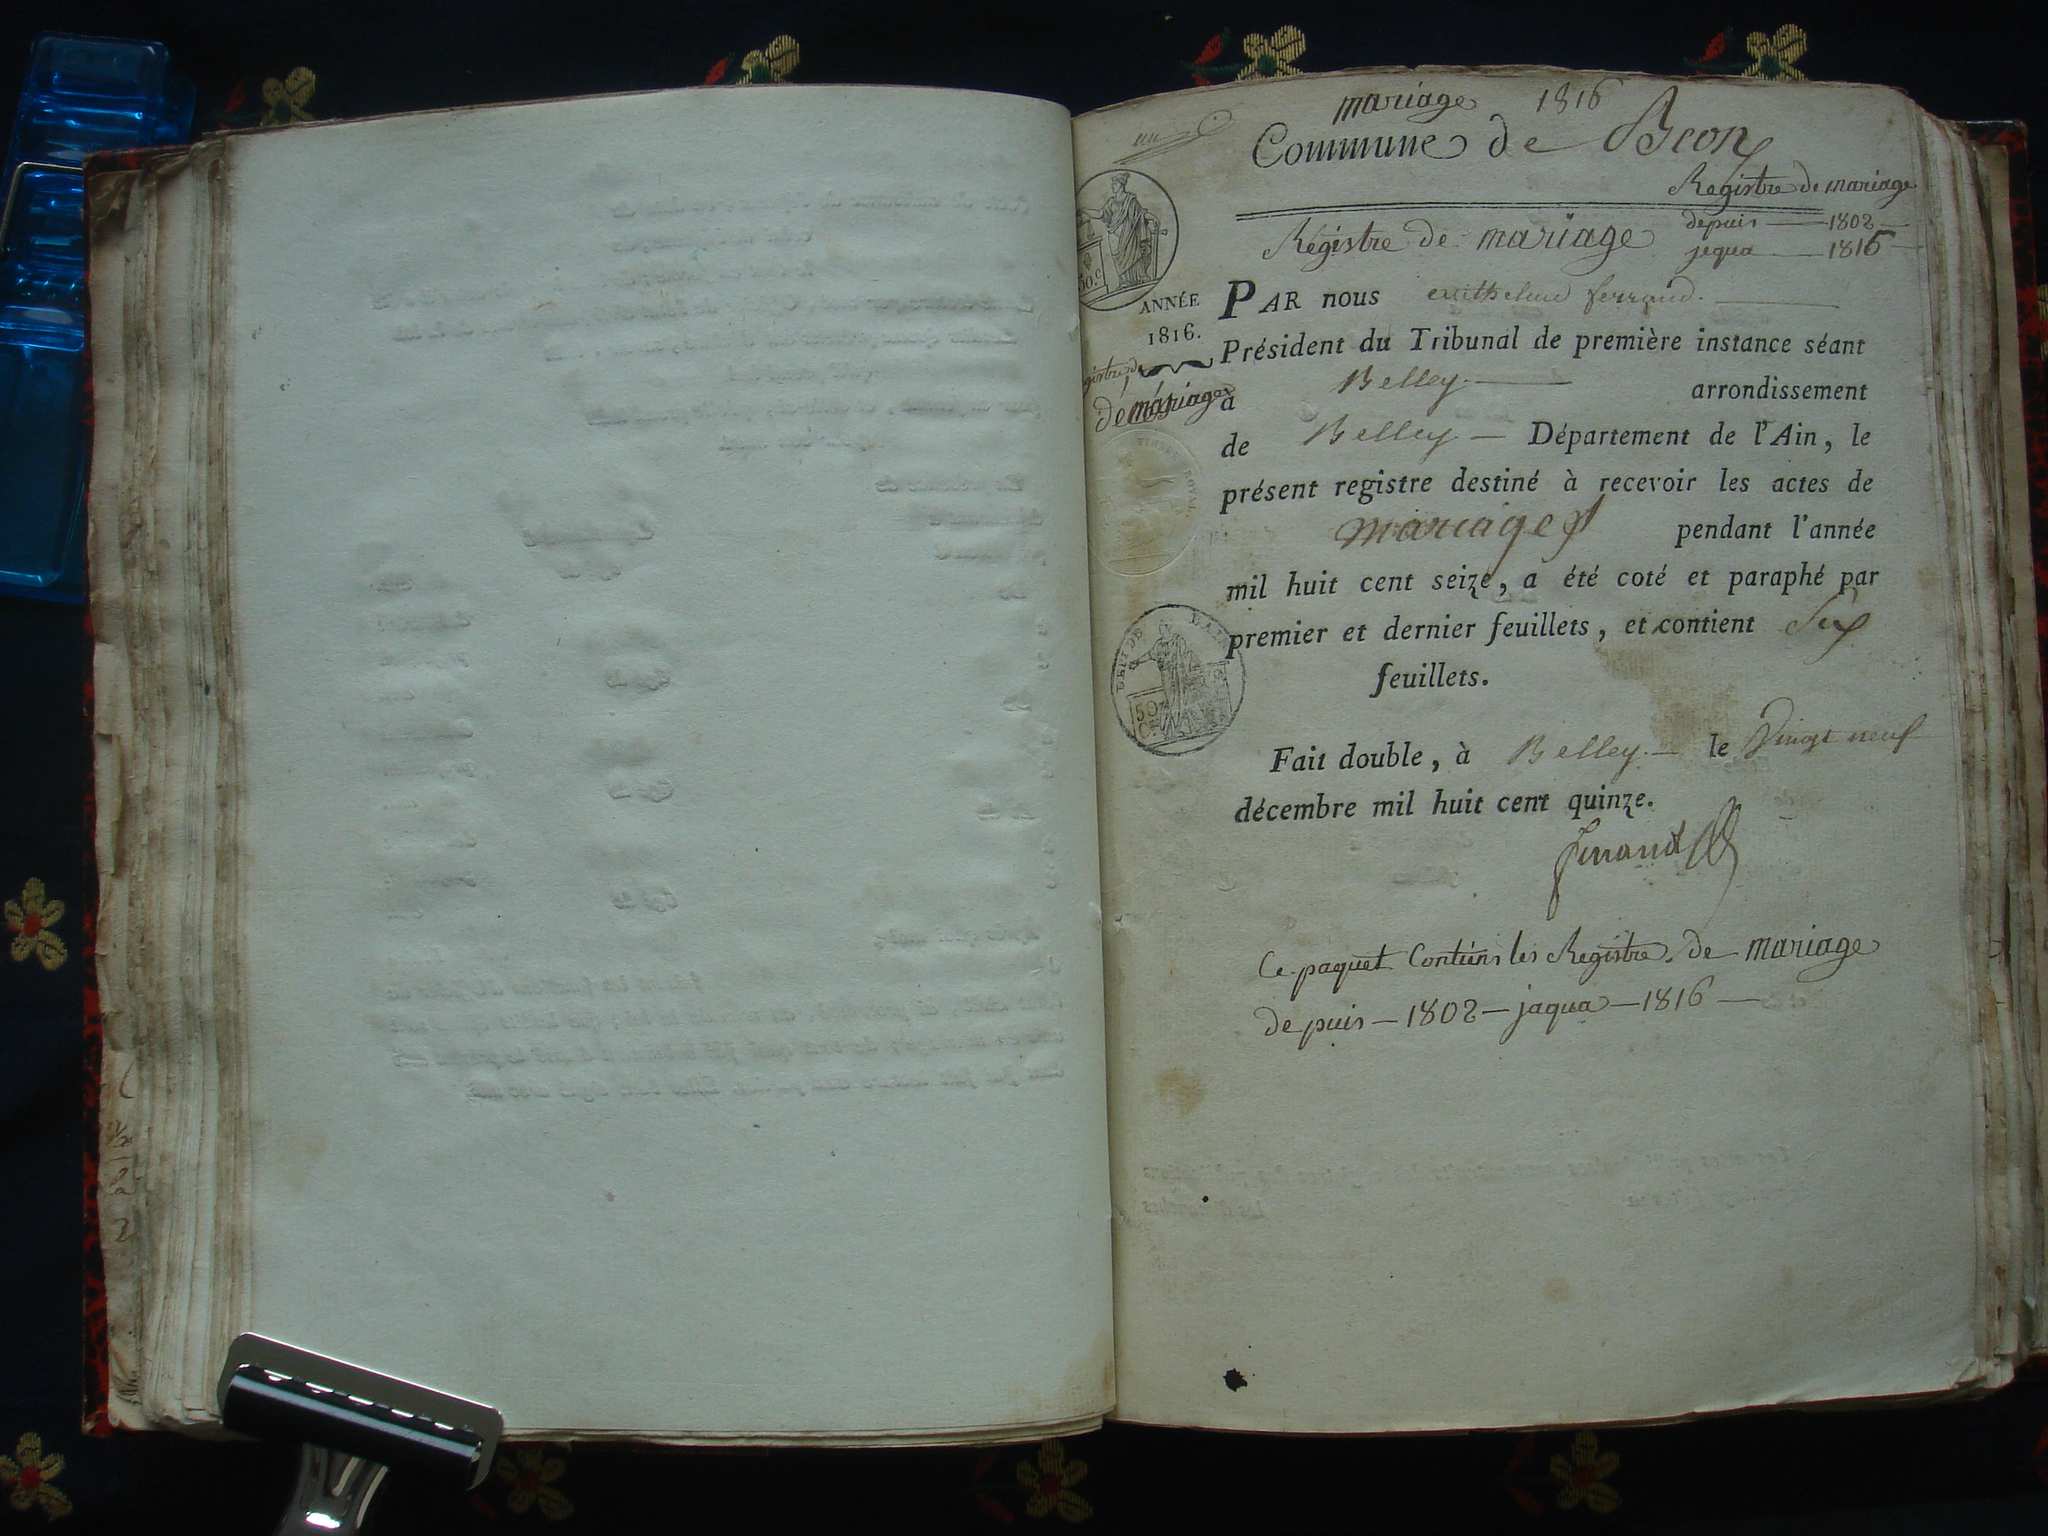 mariage 1816
Commune de Beon
Registre de mariage
depuis — 1802 —
jequa — 1816 —
Régistre de mariage
50.c
ANNÉE
1816.
de mariage
PAR nous ferrand.
Président du Tribunal de première instance séant
à Belley — arrondissement
de Belley — Département de l'Ain, le
présent registre destiné à recevoir les actes de
mariages pendant l'année
mil huit cent seize, a été coté et paraphé par
premier et dernier feuillets, et contient Six
feuillets.
50
Fait double, à Belley — le Vingt neuf
décembre mil huit cent quinze.
ferrand
Ce paquet Contiens les Registre de mariage
depuis — 1802 — jaqua — 1816 —